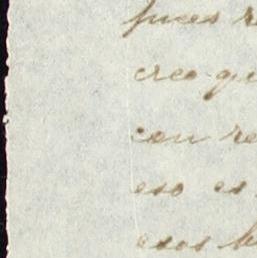 pues
creo qu
con re
eso es
esos